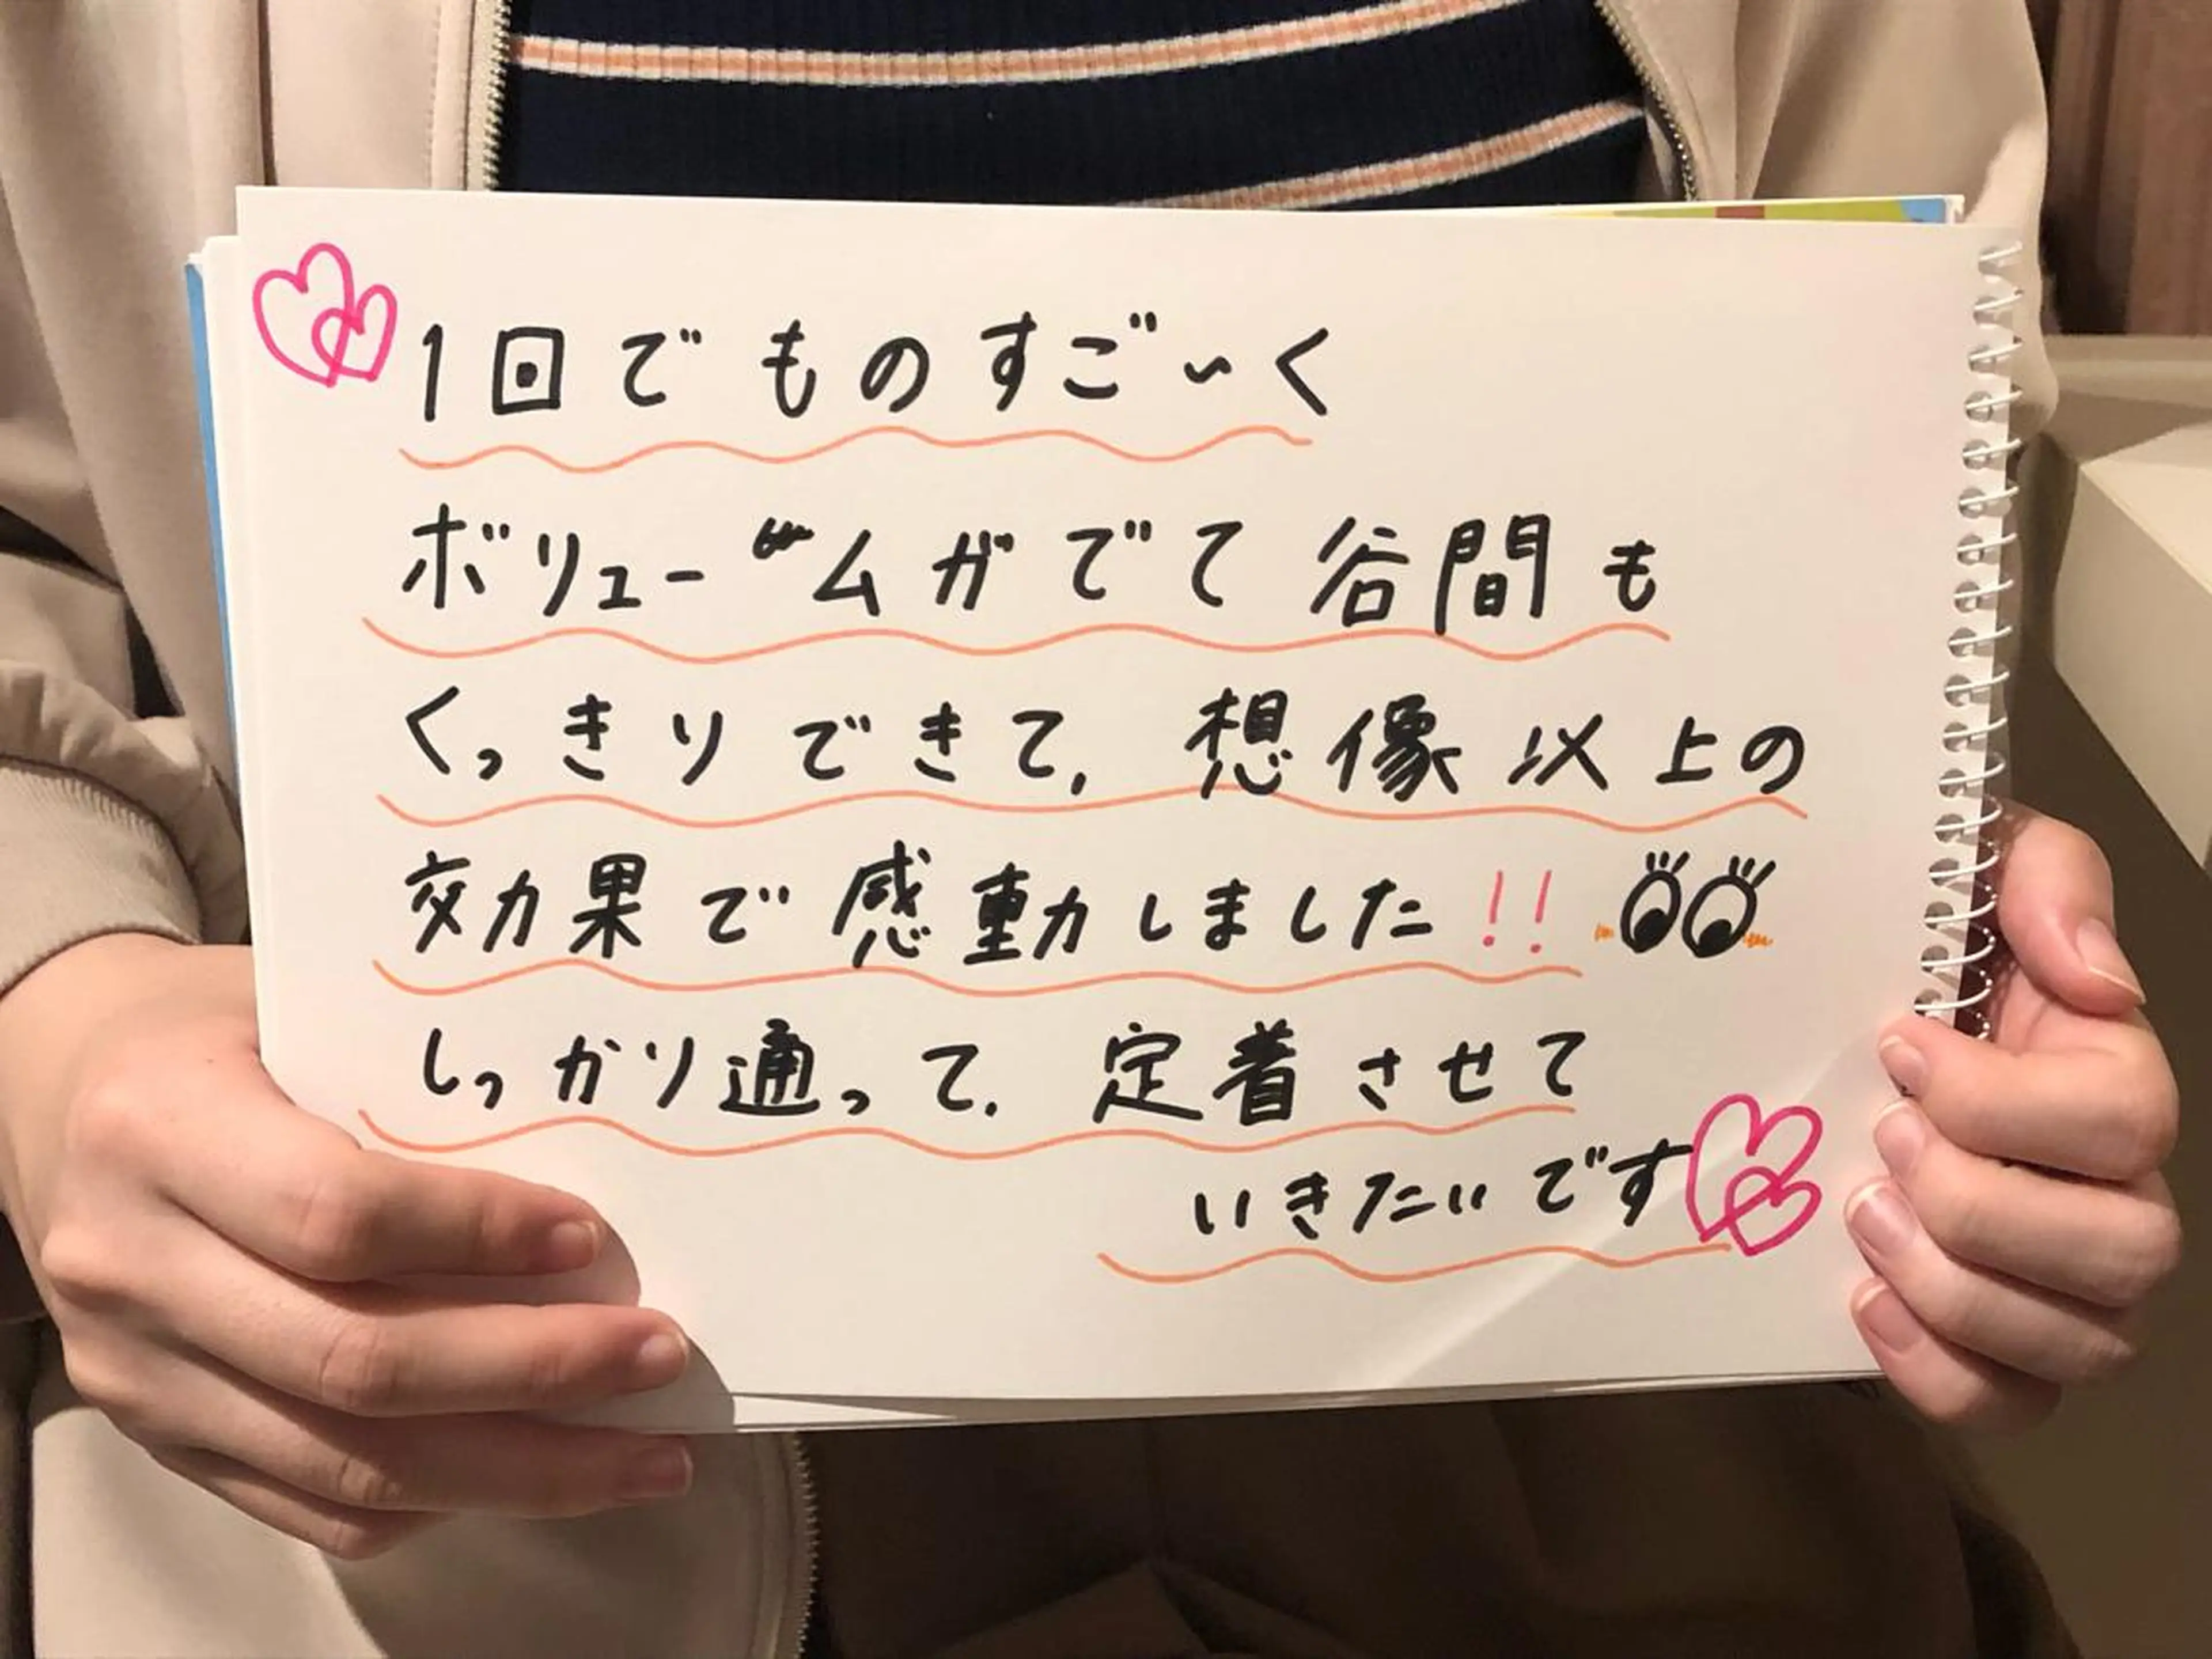 1回でものすご~く
ボリュームがでて谷間も
くっきりできて、想像以上の
効果で感動しました!!
しっかり通って、定着させて
いきたいです